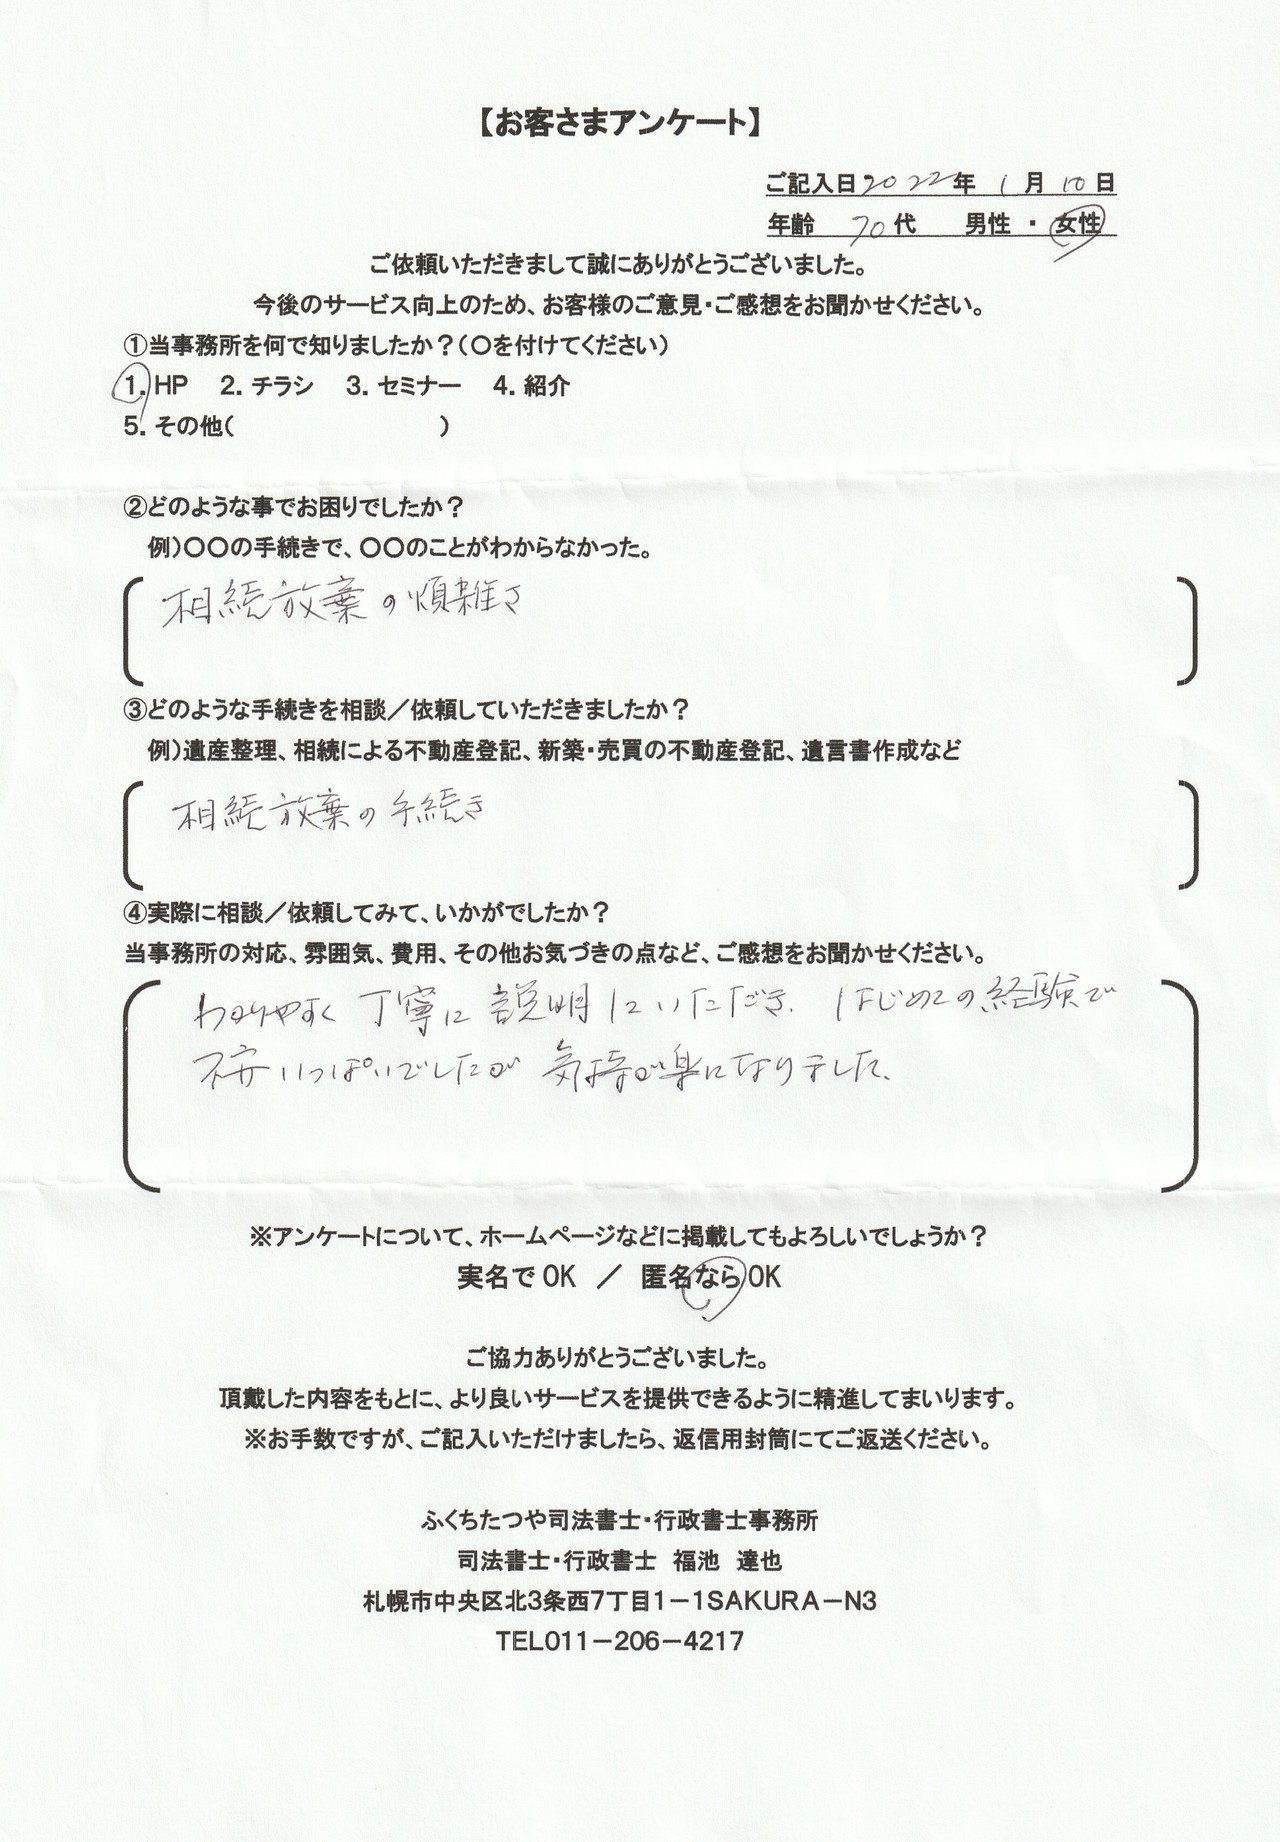 【お客さまアンケート】
ご記入日2022年 1月 10日
年齢 70代 男性 ・ 女性
ご依頼いただきまして誠にありがとうございました。
今後のサービス向上のため、お客様のご意見・ご感想をお聞かせください。
①当事務所を何で知りましたか？（〇を付けてください）
1. HP 2. チラシ 3. セミナー 4. 紹介
5. その他（ ）
②どのような事でお困りでしたか？
例）〇〇の手続きで、〇〇のことがわからなかった。
相続放棄の煩雑さ
③どのような手続きを相談／依頼していただきましたか？
例）遺産整理、相続による不動産登記、新築・売買の不動産登記、遺言書作成など
相続放棄の手続き
④実際に相談／依頼してみて、いかがでしたか？
当事務所の対応、雰囲気、費用、その他お気づきの点など、ご感想をお聞かせください。
わかりやすく丁寧に説明していただき、はじめての経験で
不安いっぱいでしたが気持が楽になりました。
※アンケートについて、ホームページなどに掲載してもよろしいでしょうか？
実名でOK ／ 匿名ならOK
ご協力ありがとうございました。
頂戴した内容をもとに、より良いサービスを提供できるように精進してまいります。
※お手数ですが、ご記入いただけましたら、返信用封筒にてご返送ください。
ふくちたつや司法書士・行政書士事務所
司法書士・行政書士 福池 達也
札幌市中央区北3条西7丁目1－1SAKURA－N3
TEL011－206－4217